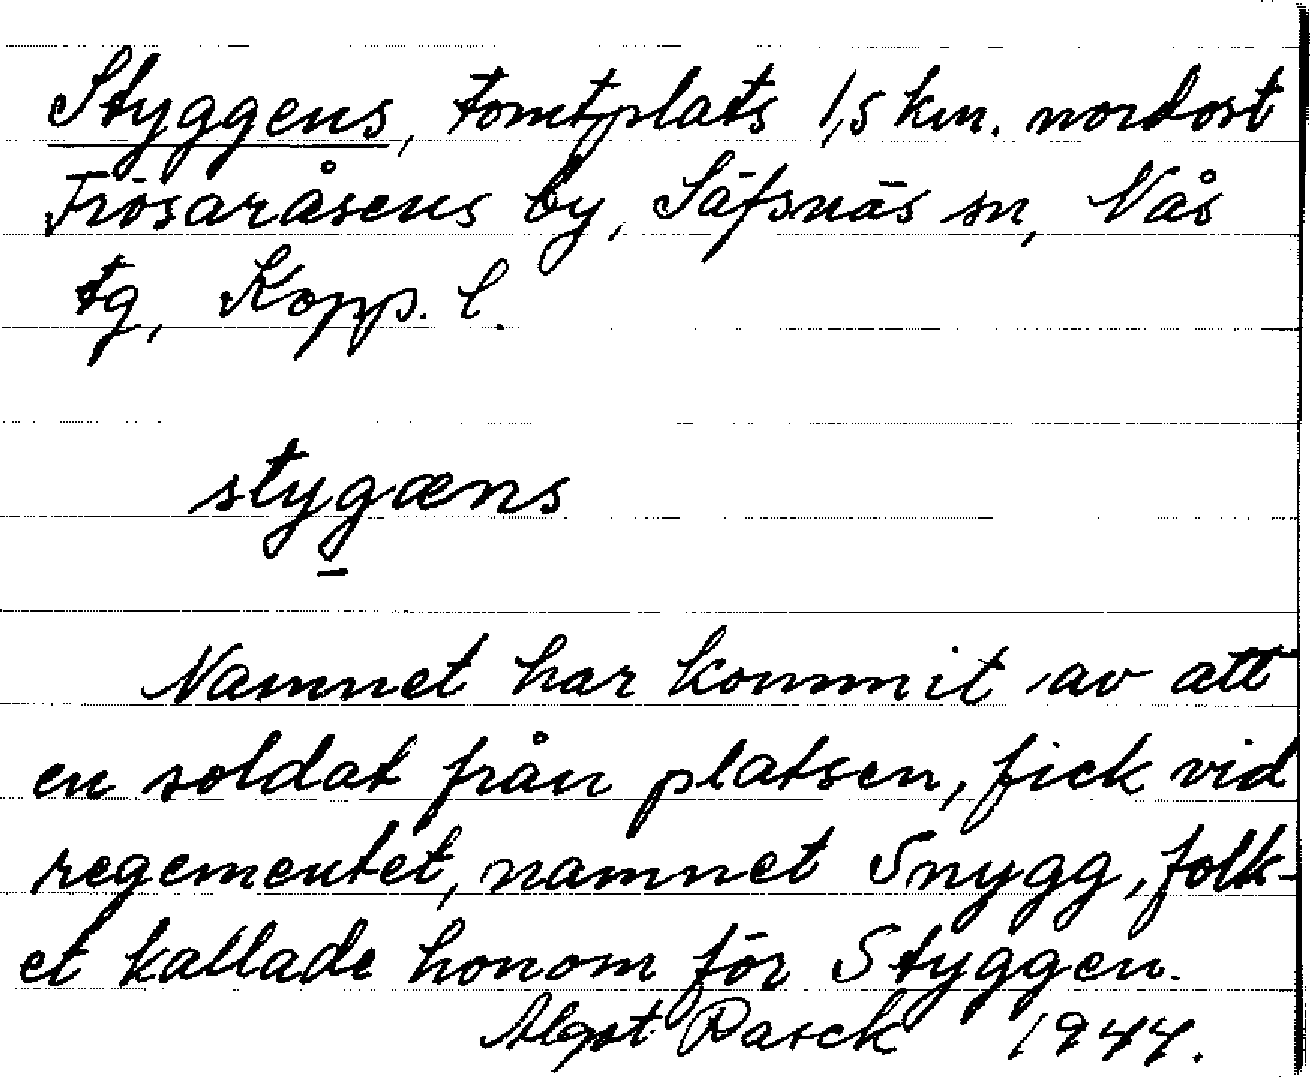 Styggens, tomtplats 1,5 km. nordost
Frösaråsens by, Säfsnäs sn, Nås
tg, Kopp. l.
stygæns
Namnet har kommit av att
en soldat från platsen, fick vid
regementet, namnet Snygg, folk-
et kallade honom för Styggen.
Algot Rasck 1944.